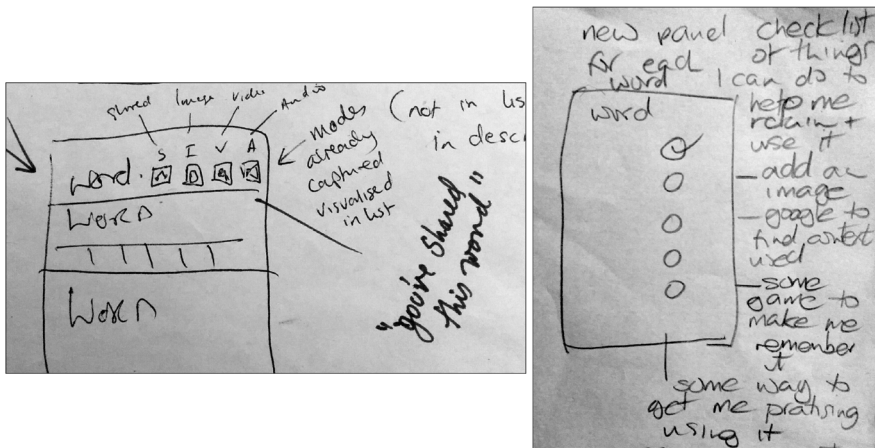 shared Image video Audio
S I V A
word.
Word
Word
modes
already
captured
visualised
in list
(not in lis
in descr
"you've shared
this word"
new panel checklist
for each of things
word I can do to
help me
retain +
use it
word
add an
image
google to
find context
used
some
game to
make me
remember
it
some way to
get me pratising
using it